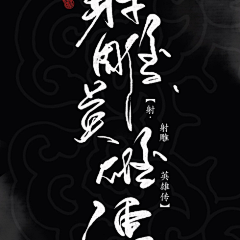 射雕英雄传
【射·射雕 英雄传】